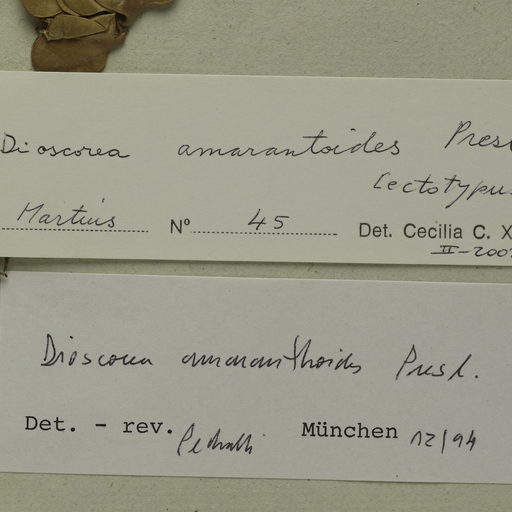 Dioscorea amarantoides Presl
Lectotypus
Martius Nº 45 Det. Cecilia C. X
II-200
Dioscorea amaranthoides Presl.
Det. - rev. Pedralli München 12/94